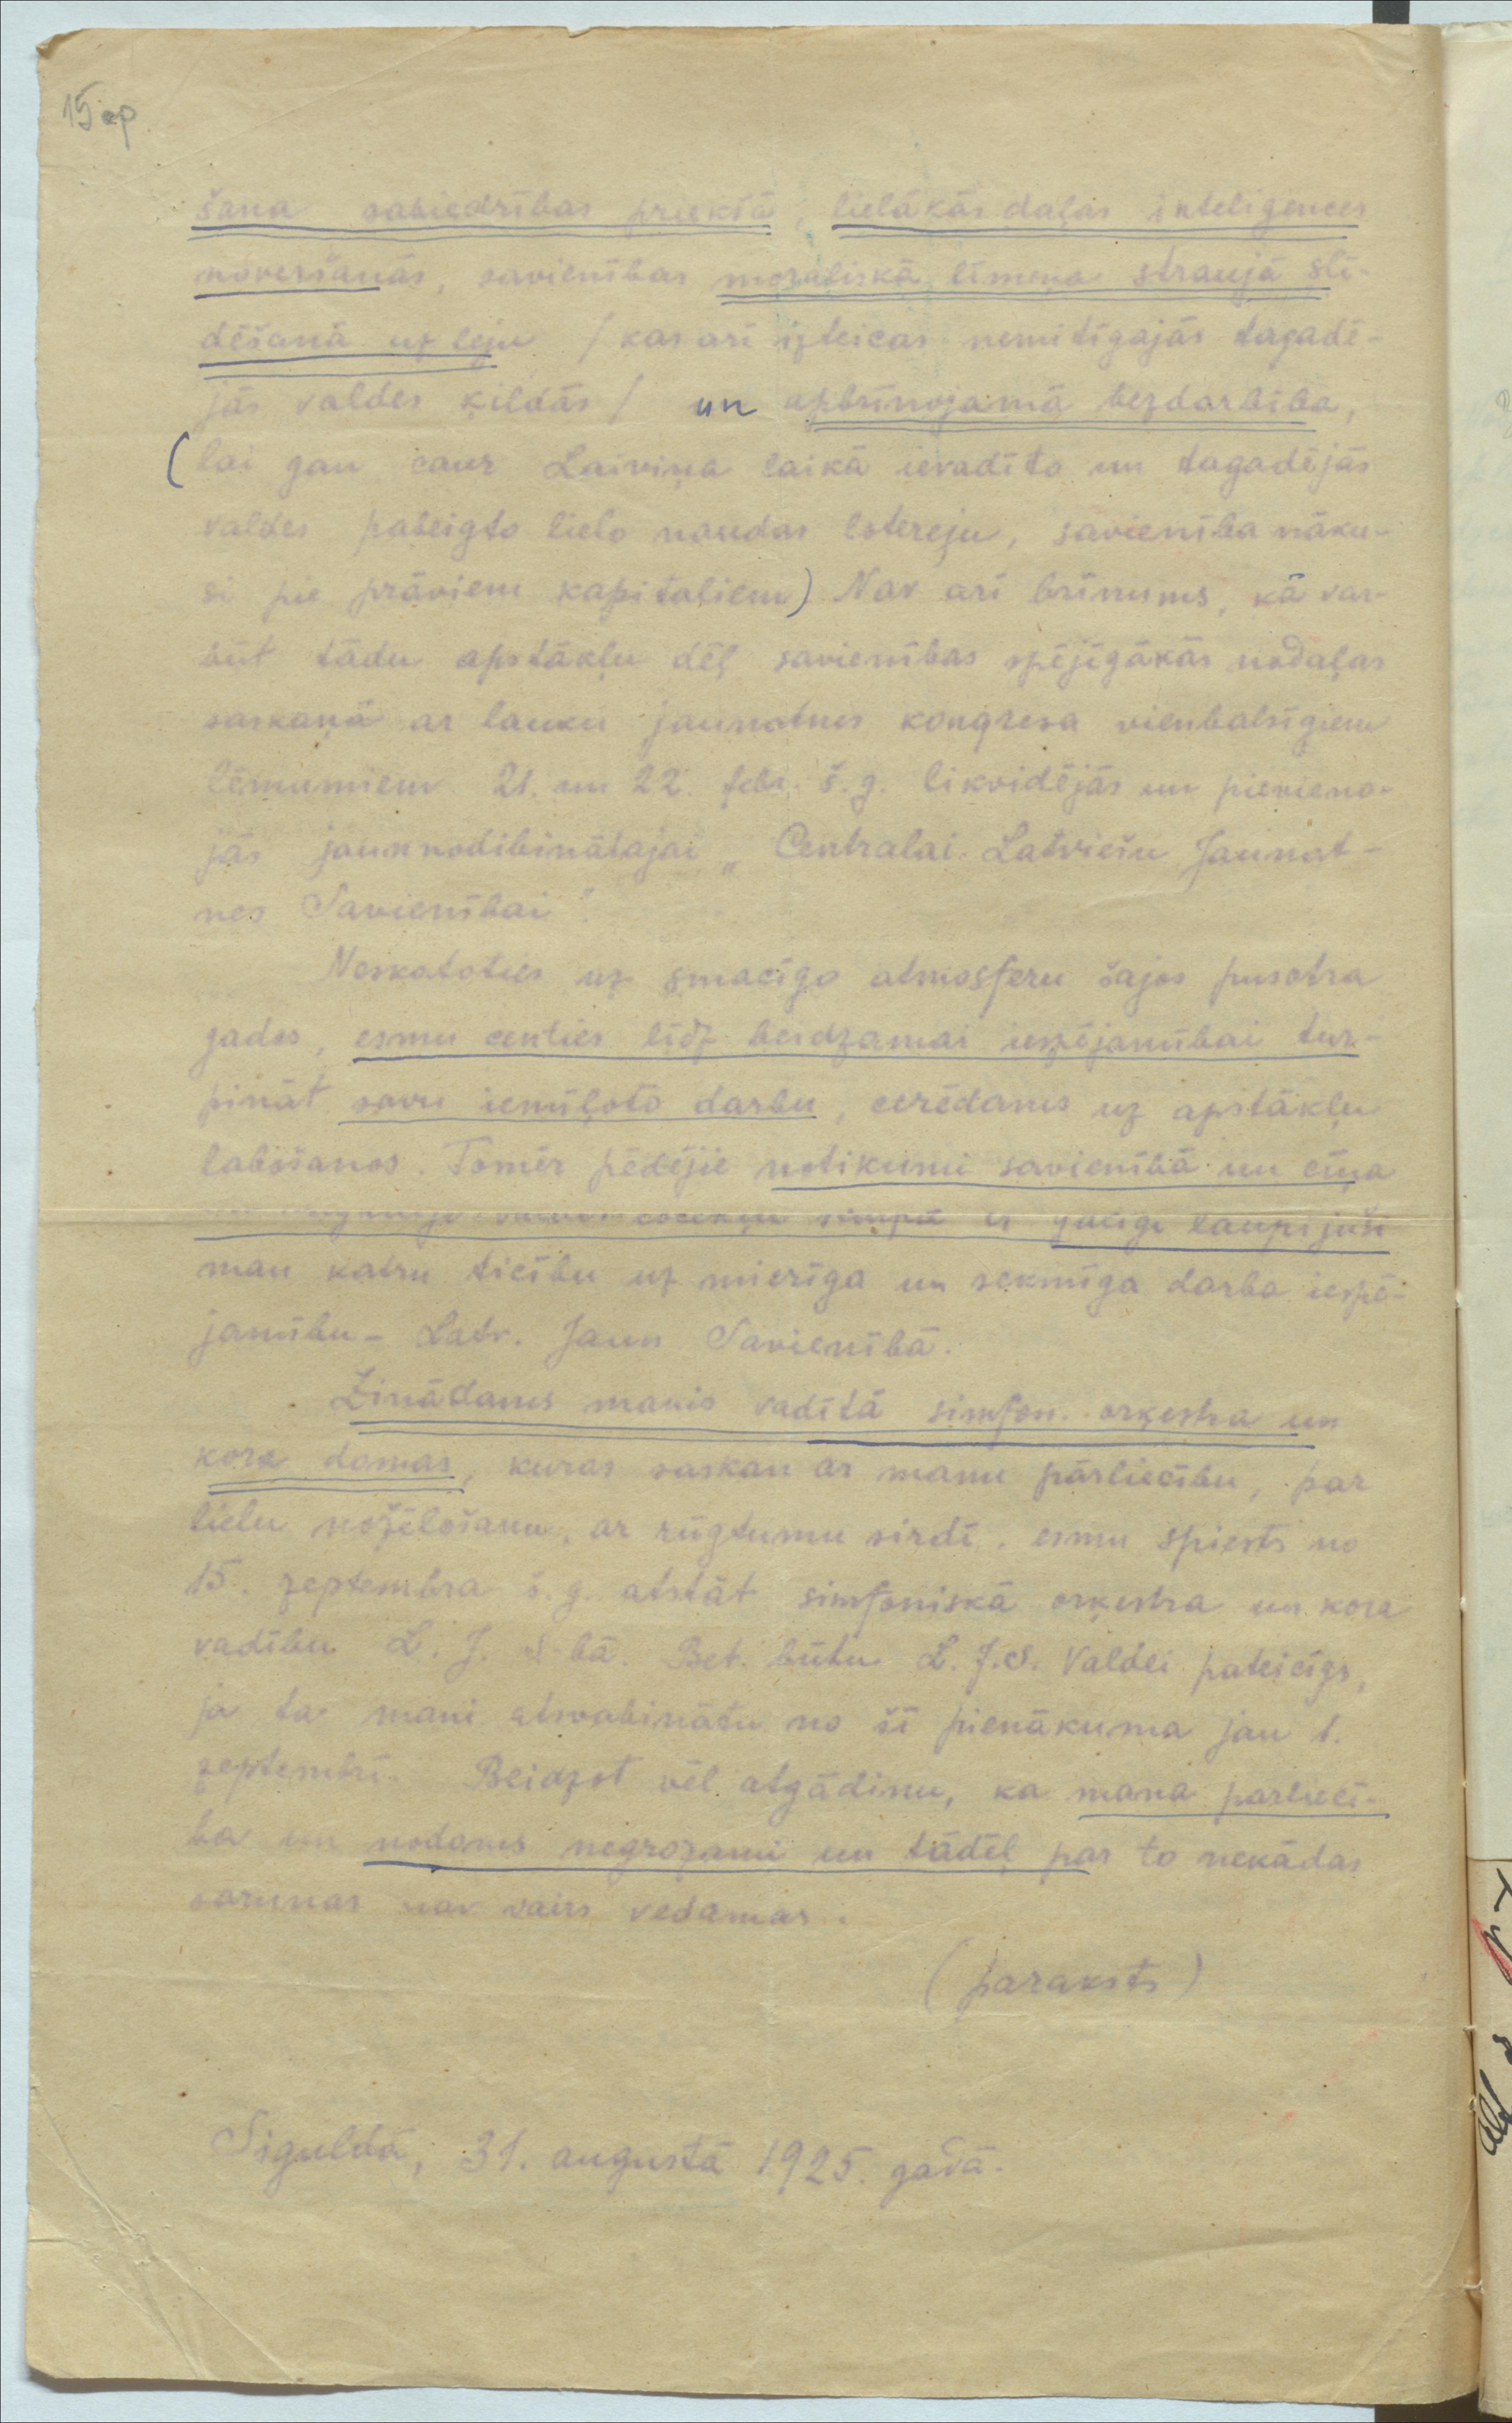 15 op
šana sabiedrības priekšā, lielākās daļas inteligences
novēršanās, savienības moraliskā līmeņa straujā slī-
dēšanā uz leju / kas arī izteicas nemitīgajās tagadē-
jās valdes ķildās / un apbrīnojamā bezdarbība,
(lai gan caur Laiviņa laikā ievadīto un tagadējās
valdes pabeigto lielo naudas lotereju, savienība nāku-
si pie prāviem kapitaliem) Nav arī brīnums, kā var-
būt tādu apstākļu dēļ savienības spējīgākās nodaļas
saskaņā ar lauku jaunatnes kongresa vienbalsīgiem
lēmumiem 21. un 22. febr. š.g. likvidējās un pievieno-
jās jaunnodibinātajai „Centralai Latviešu Jaunat-
nes Savienībai".
Neskatoties uz smacīgo atmosferu šajos pusotra
gados, esmu centies līdz beidzamai iespējamībai tur-
pināt savu iemīļoto darbu, cerēdams uz apstākļu
labošanos. Tomēr pēdējie notikumi savienībā un cīņa
ir galīgi laupijuši
man katru ticību uz mierīga un sekmīga darba iespē-
jamību - Latv. Jaun Savienībā.
Zinādams manis vadītā simfon. orķestra un
kora domas, kuras saskan ar manu pārliecību, par
lielu nožēlošanu, ar rūgtumu sirdī, esmu spiests no
15. zeptembra š.g. atstāt simfoniskā orķestra un kora
vadību L. J. S-bā. Bet būtu L.J.S. Valdei pateicīgs,
ja ta mani atsvabinātu no šī pienākuma jau 1.
zeptembrī. Beidzot vēl atgādinu, ka mana parlieci-
ba un nodoms negrozami un tādēļ par to nekādas
sarunas nav vairs vedamas.
(paraksts)
Siguldā, 31. augustā 1925. gadā.